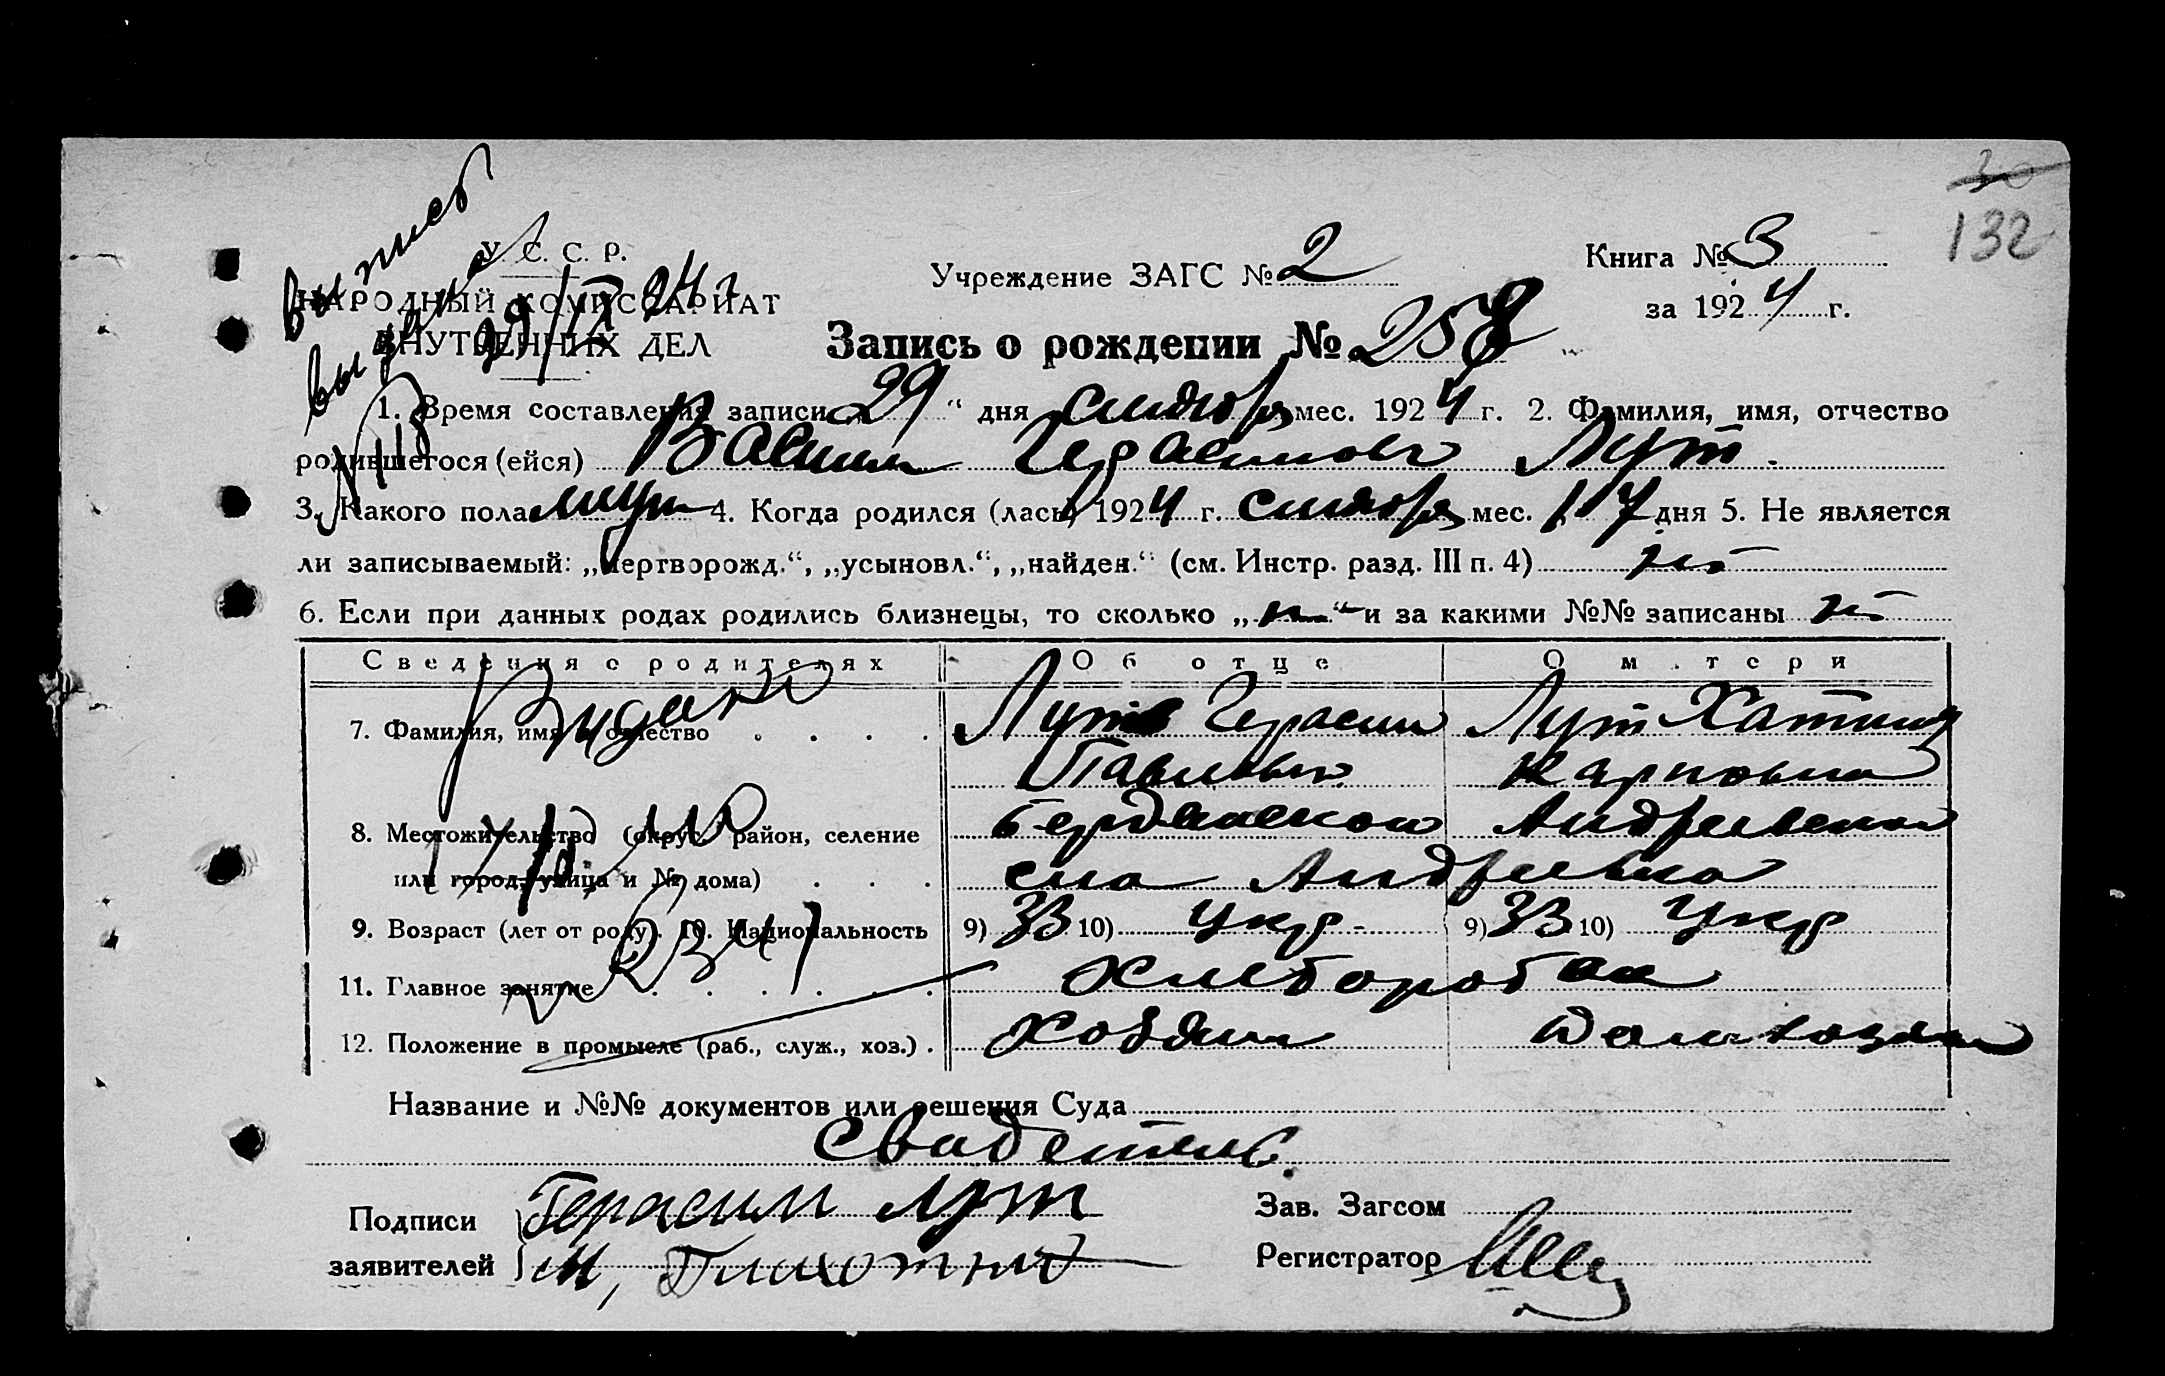 30
132
выпись
выдана
29/IX 24 г
У. С. С. Р.
НАРОДНЫЙ КОМИССАРИАТ
ВНУТРЕННИХ ДЕЛ
Учреждение ЗАГС № 2
Книга № 3
за 1924 г.
Запись о рождении № 258
1. Время составления записи „29“ дня сентября мес. 1924 г. 2. Фамилия, имя, отчество
родившегося (ейся) Василий Герасимович Лут.
3. Какого пола муж 4. Когда родился (лась) 1924 г. сентября мес. 17 дня 5. Не является
ли записываемый: „мертворожд.“, „усыновл.“, „найден.“ (см. Инстр. разд. III п. 4) нет
6. Если при данных родах родились близнецы, то сколько „нет“ и за какими №№ записаны нет
Сведения о родителях Об отце О матери
7. Фамилия, имя и отчество . . . . Лут Герасим Лут
Видано
Павлович Карповна
8. Местожительство (округ, район, селение Бердянской Андреевской
или город, улица и № дома) . . . села Андреевка
9. Возраст (лет от роду). 10. Национальность 9) 33 10) Укр- 9) 33 10) Укр
11. Главное занятие . . . . . . Хлеборобы
12. Положение в промысле (раб., служ., хоз.) . Хозяин Домохозяйка
Название и №№ документов или решения Суда
Свидетель.
Подписи Герасим Лут
заявителей
Зав. Загсом
Регистратор